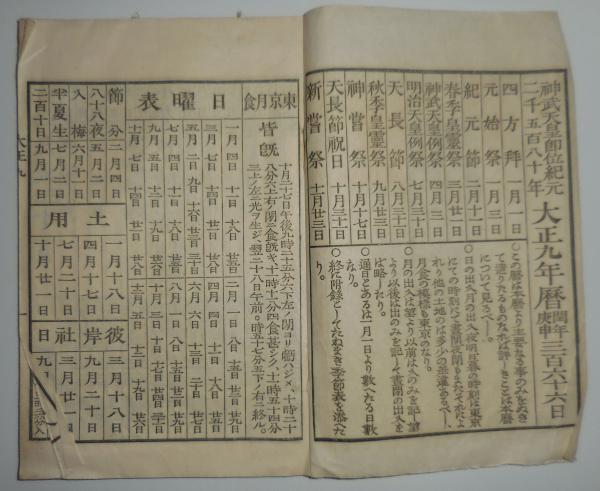 神武天皇即位紀元
二千五百八十年
大正九年暦 閏年 庚申 三百六十六日
四方拜 一月一日
元始祭 一月三日
紀元節 二月十一日
春季皇霊祭 三月廿一日
神武天皇例祭 四月三日
明治天皇例祭 七月三十日
天長節 八月三十一日
秋季皇霊祭 九月廿三日
神嘗祭 十月十七日
天長節祝日 十月三十一日
新嘗祭 十一月廿三日
○この暦は本暦より主要なる事のみをぬき
て造りたるものなれば詳しきことは本暦
について見るべし。
○日の出入月の出入夜明日暮の時刻は東京
にての時刻にて晝間夜間もみなそれによ
れり他の土地のは多少の差違あるべし、
月食の模様も東京のなり。
○月の出入は望より以前は入のみを記し望
より以後は出のみを記して晝間の出入を
ば略したり。
○通日とあるは一月一日より數へたる日數
なり。
○終に附録としてたねまき季節表を添へた
り。
東京月食
皆既
十月二十七日午後九時二十五分六下左ノ間ヨリ虧ハジメ、十時二十
八分六上右ノ間ニ食既キ、十一時十一分四食甚シク、十一時五十四分
三上ノ左ニ光ヲ生ジ、翌二十八日午前〇時五十七分五下ノ右ニ終ル。
日曜表
一月 四日 十一日 十八日 廿五日 二月 一日 八日 十五日 廿二日 廿九日
三月 七日 十四日 廿一日 廿八日 四月 四日 十一日 十八日 廿五日
五月 二日 九日 十六日 廿三日 三十日 六月 六日 十三日 二十日 廿七日
七月 四日 十一日 十八日 廿五日 八月 一日 八日 十五日 廿二日 廿九日
九月 五日 十二日 十九日 廿六日 十月 三日 十日 十七日 廿四日 三十一日
十一月 七日 十四日 廿一日 廿八日 十二月 五日 十二日 十九日 廿六日
節分 二月四日
八十八夜 五月二日
入梅 六月十一日
半夏生 七月二日
二百十日 九月一日
土用
一月十八日
四月十七日
七月二十日
十月廿一日
彼岸
三月十八日
九月二十日
社日
三月廿一日
大正九